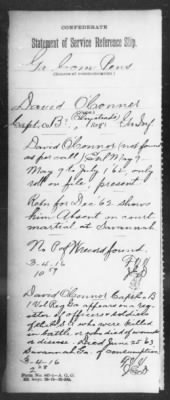 CONFEDERATE
Statement of Service Reference Slip.
Ga Com Pens
David O'Connor
Capt. B. 1 Ga Inf
David O'Connor (not found
as per call)
May 7 to July 1 '62, only
roll on file, present
Retn for Dec '62 shows
him Absent on court
martial at Savannah
No P of W record found.
3-4-16
10 57
David O'Connor Capt Co B
1 Vol Reg Ga appears on a reg-
ister of officers & soldiers
who were killed
in battle or who died of wounds
or disease. Died June 25 63
Savannah Ga. of consumption
3-4-16
2 28